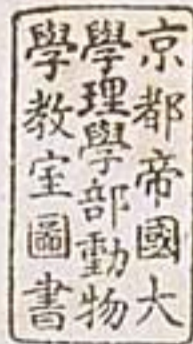 京都帝國大
學理學部動物
學教室圖書